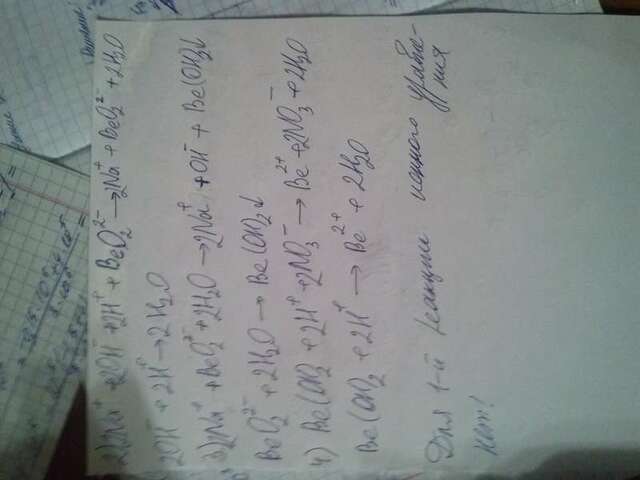 2) 2Na⁺ + 2OH⁻ + 2H⁺ + BeO₂²⁻ → 2Na⁺ + BeO₂²⁻ + 2H₂O
2OH⁻ + 2H⁺ → 2H₂O
3) 2Na⁺ + BeO₂²⁻ + 2H₂O → 2Na⁺ + OH⁻ + Be(OH)₂↓
BeO₂²⁻ + 2H₂O → Be(OH)₂↓
4) Be(OH)₂ + 2H⁺ + 2NO₃⁻ → Be²⁺ + 2NO₃⁻ + 2H₂O
Be(OH)₂ + 2H⁺ → Be²⁺ + 2H₂O
Для 1-й реакции ионного уравне-
ния
нет!